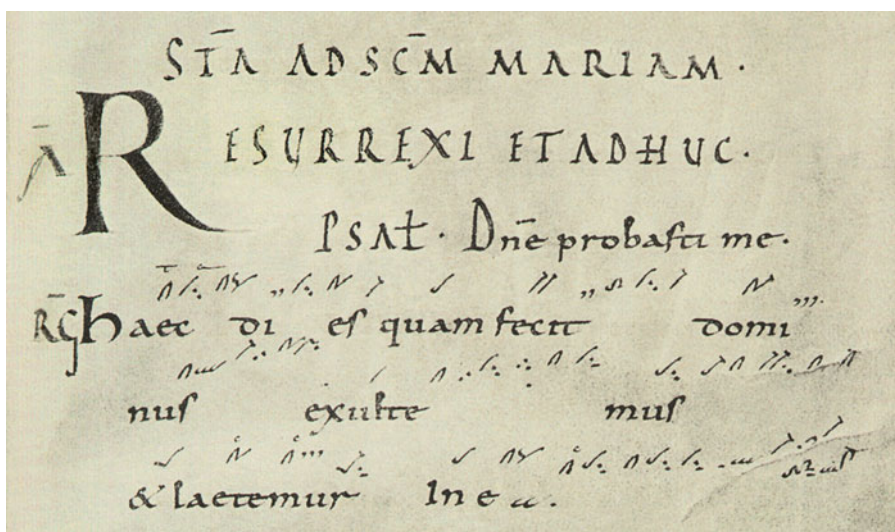 STĀ AD SC̄M MARIAM·
Ā RESURREXI ET AD HUC·
PSAŁ· Dn̄e probasti me.
R̄G haec di es quam fecit domi
nus exulte mus
& laetemur In ea.